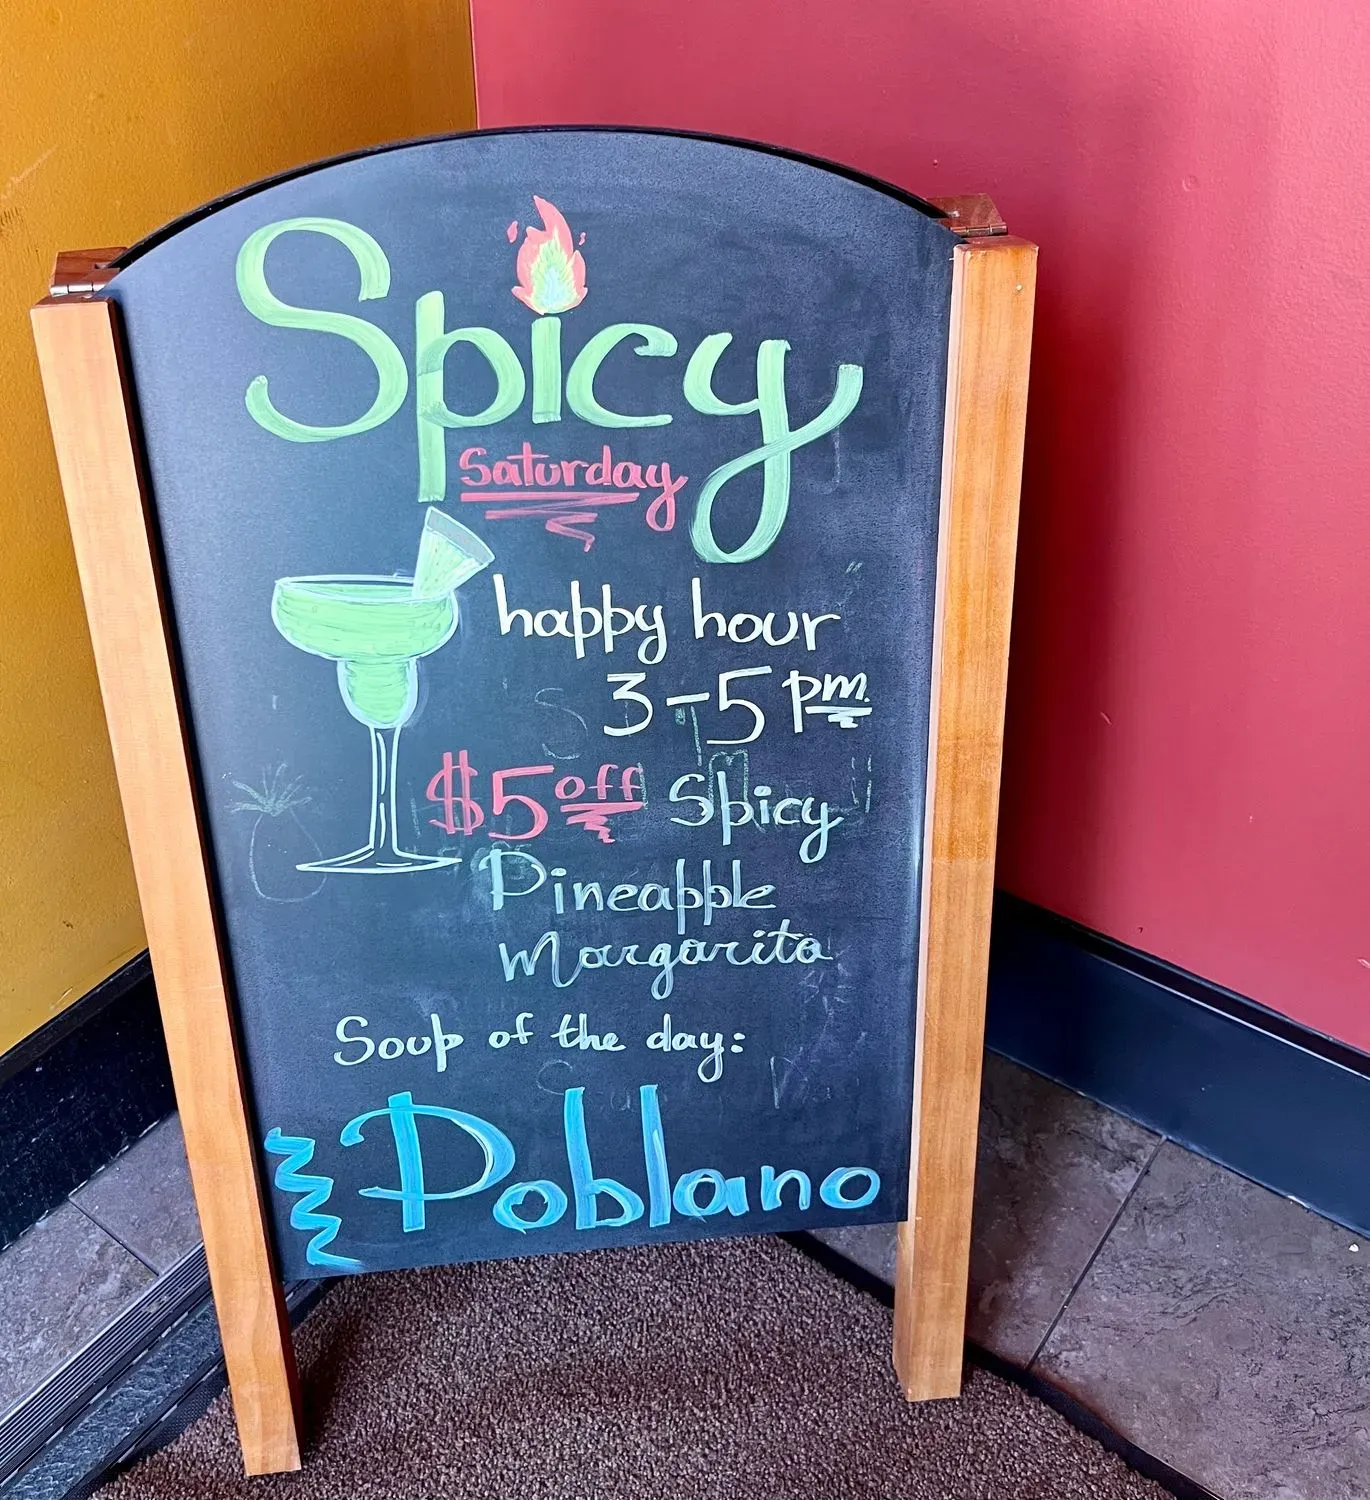 Spicy
Saturday
happy hour
3-5 pm
$5 off Spicy
Pineapple
Margarita
Soup of the day:
Poblano